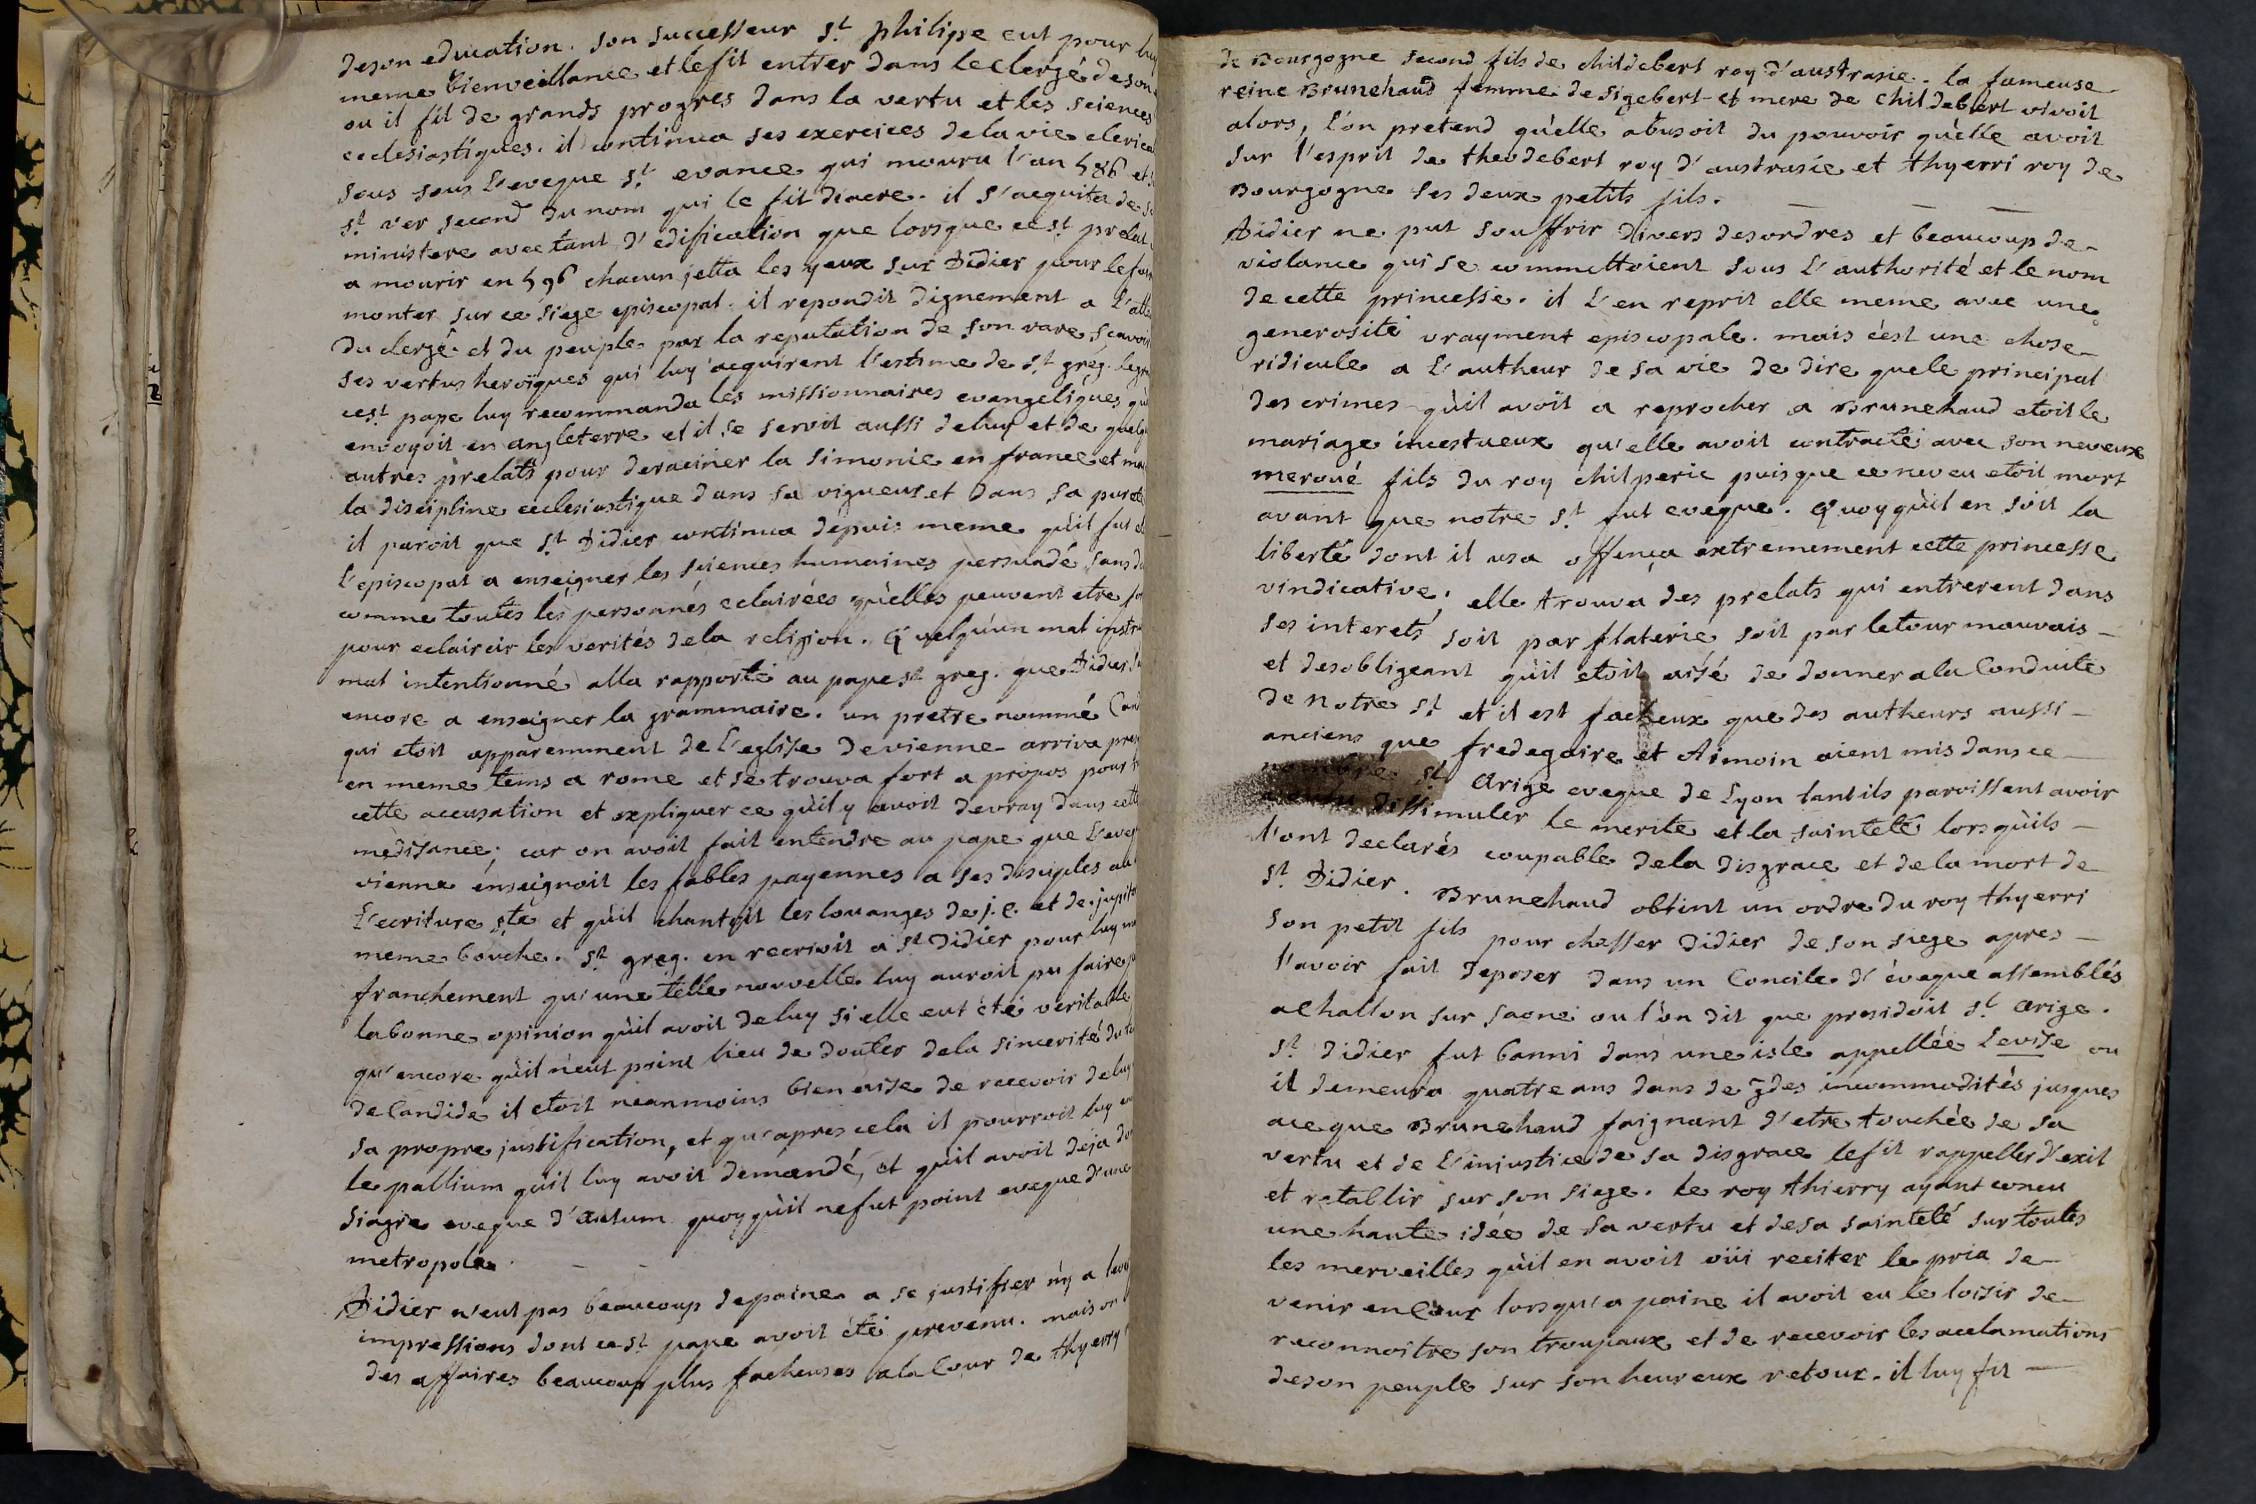 de son education. son successeur s.t philipe eut pour luy
meme bienveillance et le fit entrer dans le clergé de son
ou il fit de grands progres dans la vertu et les sciences
ecclesiastiques. il continua ses exercices de la vie clerica
sous sous l'eveque s.t evance qui mouru l'an 586 et
s.t ver second du nom qui le fit diacre. il s'acquita de s
ministere avec tant d'edification que lorsque ce s.t prelat
a mourir en 596 chacun jetta les yeux sur Didier pour le fai
monter sur ce siege episcopal. il repondit dignement a l'att
du clergé et du peuple par la reputation de son rare scavoi
ses vertus heroïques qui luy acquirent l'estime de s.t greg. le gr
ce s.t pape luy recommanda les missionnaires evangeliques qu
envoyoit en angleterre et il se servit aussi de luy et de quelq
autres prelats pour deraciner la simonie en france et ma
la discipline ecclesiastique dans sa vigueur et dans sa pureté
il paroit que s.t Didier continua depuis meme qu'il fut e
l'episcopat a enseigner les sciences humaines persuadé sans d
comme toutes les personnes eclairées qu'elles peuvent etre fo
pour eclaircir les verités de la religion. Quelqu'un mal instru
mal intentionné alla rapporté au pape s.t greg. que Didier s'
encore a enseigner la grammaire. un pretre nommé Can
qui etoit apparemment de l'eglise de vienne arriva pre
en meme tems a rome et se trouva fort a propos pour
cette accusation et expliquer ce qu'il y avoit de vray dans cett
medisance; car on avoit fait entendre au pape que l'eve
vienne enseignoit les fables payennes a ses disciples au
l'ecriture s.te et qu'il chantoit les louanges de j.c. et de jupite
meme bouche. s.t greg. en recrivit a s.t Didier pour luy
franchement qu'une telle nouvelle luy auroit pu faire
la bonne opinion qu'il avoit de luy si elle eut été veritable
qu'encore qu'il n'eut point lieu de douter de la sincerité du
de Candide il etoit neanmoins bien aise de recevoir de luy
sa propre justification, et qu'apres cela il pourroit luy
le pallium qu'il luy avoit demandé, et qu'il avoit deja do
siagre eveque d'autum quoyqu'il ne fut point eveque d'une
metropole.
Didier n'eut pas beaucoup de paine a se justifier n'y a lev
impressions dont ce s.t pape avoit été prevenu. mais on
des affaires beaucoup plus facheuses a la Cour de thyerry
de Bourgogne second fils de childebert roy d'austrasie. la fameuse
reine Brunehaud femme de sigebert et mere de childebert vivoit
alors, l'on pretend qu'elle abusoit du pouvoir qu'elle avoit
sur l'esprit de theodebert roy d'austrasie et thyerri roy de
Bourgogne ses deux petits fils.
Didier ne put souffrir divers desordres et beaucoup de
violance qui se commettoient sous l'authorité et le nom
de cette princesse. il l'en reprit elle meme avec une
generosité vrayment episcopale. mais c'est une chose
ridicule a l'autheur de sa vie de dire que le principal
des crimes qu'il avoit a reprocher a Brunehaud etoit le
mariage incestueux qu'elle avoit contracté avec son neveux
meroué fils du roy chilperic puisque ce neveu etoit mort
avant que notre s.t fut eveque. Quoyqu'il en soit la
liberté dont il usa offença extremement cette princesse
vindicative; elle trouva des prelats qui entrerent dans
ses interets soit par flaterie soit par le tour mauvais
et desobligeant qu'il etoit aisé de donner a la Conduite
de notre s.t et il est facheux que des autheurs aussi
anciens que fredegaire et Aimoin aient mis dans ce
nombre s.t Arige eveque de Lyon tant ils paroissent avoir
voulu dissimuler le merite et la sainteté lors qu'ils
l'ont declarés coupable de la disgrace et de la mort de
s.t Didier. Brunehaud obtint un ordre du roy thyerri
son petit fils pour chasser Didier de son siege apres
l'avoir fait deposer dans un Concile d'eveque assemblés
a Challon sur saone ou l'on dit que presidoit s.t Arige.
s.t Didier fut banni dans une isle appellée Levise ou
il demeura quatre ans dans de gdes incommodités jusques
a ce que Brunehaud faignant d'etre touchée de sa
vertu et de l'injustice de sa disgrace le fit rappeller d'exil
et retablir sur son siege. le roy thierry ayant concu
une haute idée de sa vertu et de sa sainteté sur toutes
les merveilles qu'il en avoit oüi reciter le pria de
venir en Cour lorsqu'a paine il avoit eu le loisir de
reconnoitre son troupeaux et de recevoir les acclamations
de son peuple sur son heureux retour. il luy fit